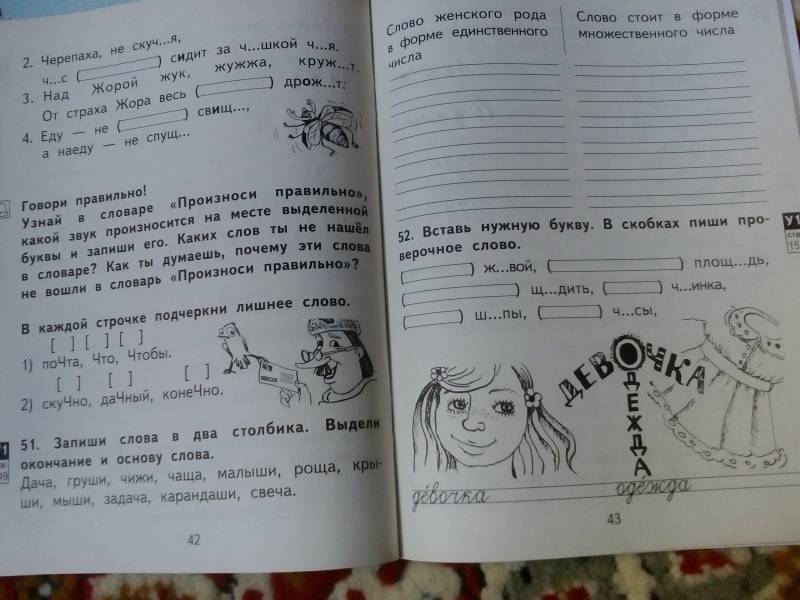 2. Черепаха, не скуч...я,
ч...с ( ) сидит за ч...шкой ч...я.
3. Над Жорой жук, жужжа, круж...т.
От страха Жора весь ( ) дрож...т.
4. Еду — не ( ) свищ...,
а наеду — не спущ...
Говори правильно!
Узнай в словаре «Произноси правильно»,
какой звук произносится на месте выделенной
буквы и запиши его. Каких слов ты не нашёл
в словаре? Как ты думаешь, почему эти слова
не вошли в словарь «Произноси правильно»?
В каждой строчке подчеркни лишнее слово.
[ ] [ ] [ ]
1) поЧта, Что, Чтобы.
[ ] [ ] [ ]
2) скуЧно, даЧный, конеЧно.
51. Запиши слова в два столбика. Выдели
окончание и основу слова.
Дача, груши, чижи, чаща, малыши, роща, кры-
ши, мыши, задача, карандаши, свеча.
42
Слово женского рода
в форме единственного
числа
Слово стоит в форме
множественного числа
52. Вставь нужную букву. В скобках пиши про-
верочное слово.
( ) ж...вой, ( ) площ...дь,
( ) щ...дить, ( ) ч...инка,
( ) ш...пы, ( ) ч...сы,
У1
стр.
15
ДЕВОЧКА
ОДЕЖДА
девочка
одежда
43